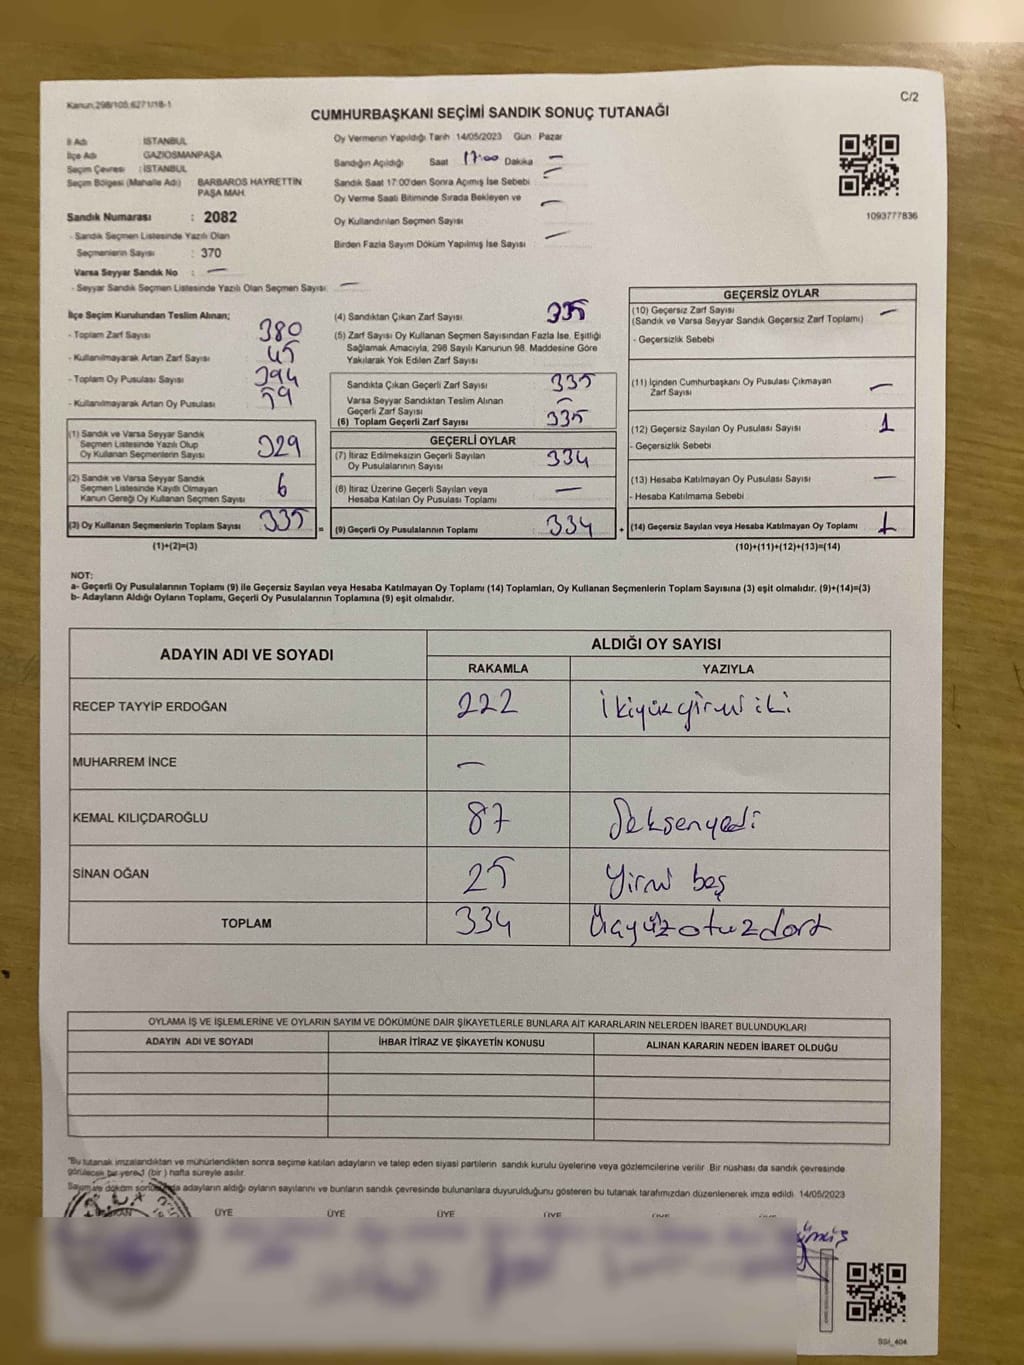 Kanun:298/105;6271/18-1
C/2
CUMHURBAŞKANI SEÇİMİ SANDIK SONUÇ TUTANAĞI
İl Adı İSTANBUL
İlçe Adı GAZİOSMANPAŞA
Seçim Çevresi : İSTANBUL
Seçim Bölgesi (Mahalle Adı) BARBAROS HAYRETTİN PAŞA MAH.
Sandık Numarası : 2082
- Sandık Seçmen Listesinde Yazılı Olan
Seçmenlerin Sayısı : 370
Varsa Seyyar Sandık No : —
- Seyyar Sandık Seçmen Listesinde Yazılı Olan Seçmen Sayısı: —
Oy Vermenin Yapıldığı Tarih 14/05/2023 Gün Pazar
Sandığın Açıldığı Saat 17:00 Dakika —
Sandık Saat 17:00'den Sonra Açılmış İse Sebebi : —
Oy Verme Saati Bitiminde Sırada Bekleyen ve —
Oy Kullandırılan Seçmen Sayısı
Birden Fazla Sayım Döküm Yapılmış İse Sayısı : —
1093777836
İlçe Seçim Kurulundan Teslim Alınan;
- Toplam Zarf Sayısı 380
- Kullanılmayarak Artan Zarf Sayısı 45
- Toplam Oy Pusulası Sayısı 394
- Kullanılmayarak Artan Oy Pusulası 59
(1) Sandık ve Varsa Seyyar Sandık
Seçmen Listesinde Yazılı Olup
Oy Kullanan Seçmenlerin Sayısı 329
(2) Sandık ve Varsa Seyyar Sandık
Seçmen Listesinde Kayıtlı Olmayan
Kanun Gereği Oy Kullanan Seçmen Sayısı 6
(3) Oy Kullanan Seçmenlerin Toplam Sayısı 335 =
(1)+(2)=(3)
(4) Sandıktan Çıkan Zarf Sayısı 335
(5) Zarf Sayısı Oy Kullanan Seçmen Sayısından Fazla İse, Eşitliği
Sağlamak Amacıyla, 298 Sayılı Kanunun 98. Maddesine Göre
Yakılarak Yok Edilen Zarf Sayısı
Sandıkta Çıkan Geçerli Zarf Sayısı 335
Varsa Seyyar Sandıktan Teslim Alınan
Geçerli Zarf Sayısı —
(6) Toplam Geçerli Zarf Sayısı 335
GEÇERLİ OYLAR
(7) İtiraz Edilmeksizin Geçerli Sayılan
Oy Pusulalarının Sayısı : 334
(8) İtiraz Üzerine Geçerli Sayılan veya
Hesaba Katılan Oy Pusulası Toplamı : —
(9) Geçerli Oy Pusulalarının Toplamı : 334 +
GEÇERSİZ OYLAR
(10) Geçersiz Zarf Sayısı —
(Sandık ve Varsa Seyyar Sandık Geçersiz Zarf Toplamı)
- Geçersizlik Sebebi
(11) İçinden Cumhurbaşkanı Oy Pusulası Çıkmayan
Zarf Sayısı —
(12) Geçersiz Sayılan Oy Pusulası Sayısı 1
- Geçersizlik Sebebi
(13) Hesaba Katılmayan Oy Pusulası Sayısı —
- Hesaba Katılmama Sebebi
(14) Geçersiz Sayılan veya Hesaba Katılmayan Oy Toplamı 1
(10)+(11)+(12)+(13)=(14)
NOT:
a- Geçerli Oy Pusulalarının Toplamı (9) ile Geçersiz Sayılan veya Hesaba Katılmayan Oy Toplamı (14) Toplamları, Oy Kullanan Seçmenlerin Toplam Sayısına (3) eşit olmalıdır. (9)+(14)=(3)
b- Adayların Aldığı Oyların Toplamı, Geçerli Oy Pusulalarının Toplamına (9) eşit olmalıdır.
ADAYIN ADI VE SOYADI
ALDIĞI OY SAYISI
RAKAMLA YAZIYLA
RECEP TAYYİP ERDOĞAN 222 ikiyüzyirmi iki
MUHARREM İNCE —
KEMAL KILIÇDAROĞLU 87 Seksenyedi
SİNAN OĞAN 25 Yirmi beş
TOPLAM 334 Üçyüzotuzdört
OYLAMA İŞ VE İŞLEMLERİNE VE OYLARIN SAYIM VE DÖKÜMÜNE DAİR ŞİKAYETLERLE BUNLARA AİT KARARLARIN NELERDEN İBARET BULUNDUKLARI
ADAYIN ADI VE SOYADI İHBAR İTİRAZ VE ŞİKAYETİN KONUSU ALINAN KARARIN NEDEN İBARET OLDUĞU
"Bu tutanak imzalandıktan ve mühürlendikten sonra seçime katılan adayların ve talep eden siyasi partilerin sandık kurulu üyelerine veya gözlemcilerine verilir. Bir nüshası da sandık çevresinde
görülecek bir yere 1 (bir) hafta süreyle asılır.
Sayım ve döküm sonucunda adayların aldığı oyların sayılarını ve bunların sandık çevresinde bulunanlara duyurulduğunu gösteren bu tutanak tarafımızdan düzenlenerek imza edildi. 14/05/2023
BAŞKAN ÜYE ÜYE ÜYE ÜYE
SSI_404